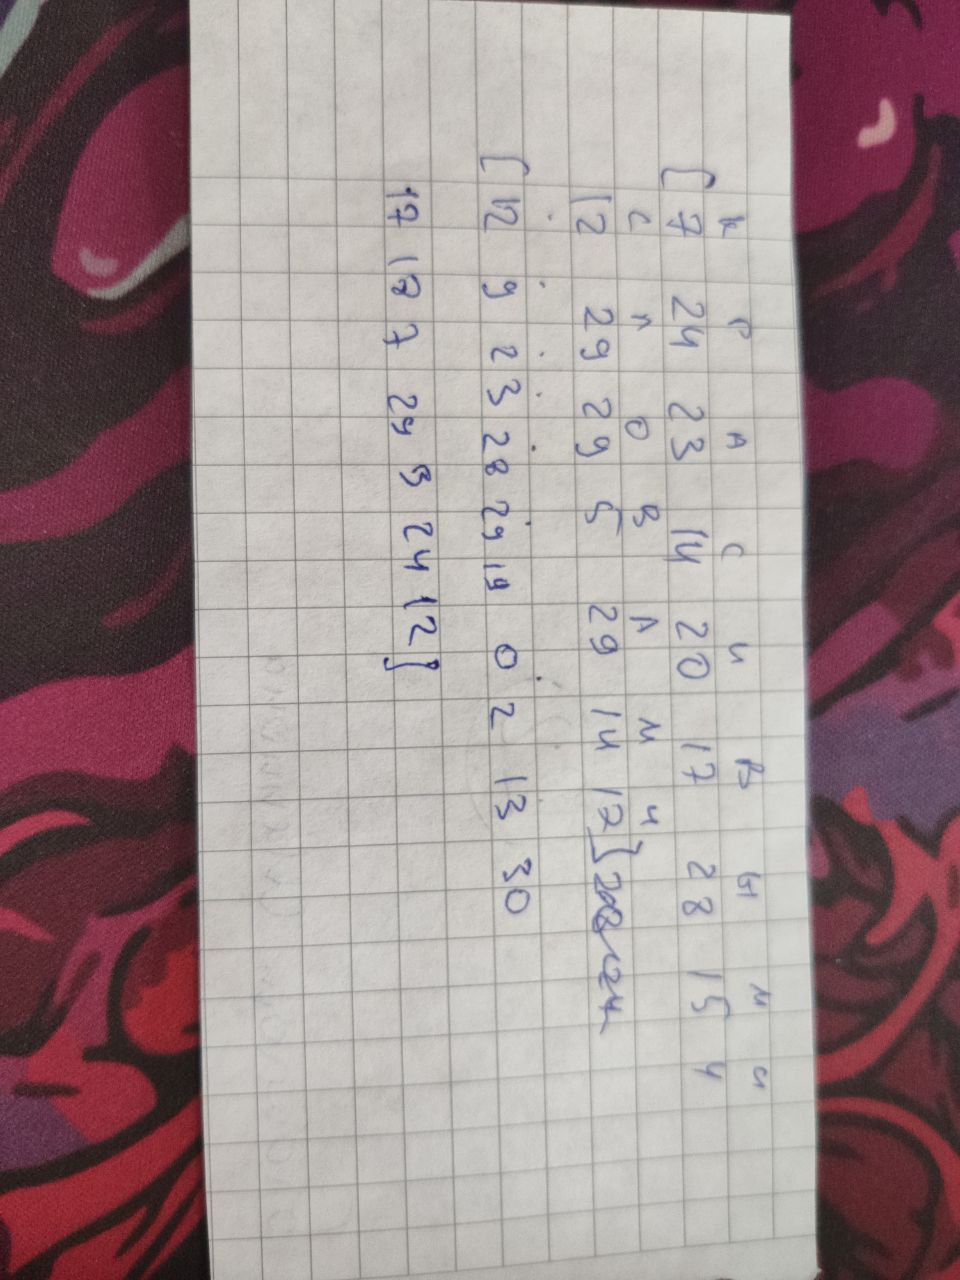 К Р А С И В Ы М И
[7 24 23 14 20 17 28 15 4
С Л О В А М И
12 29 29 5 29 14 12]
[12 9 2 3 28 29 19 0 2 13 30
17 18 7 24 13 24 12]